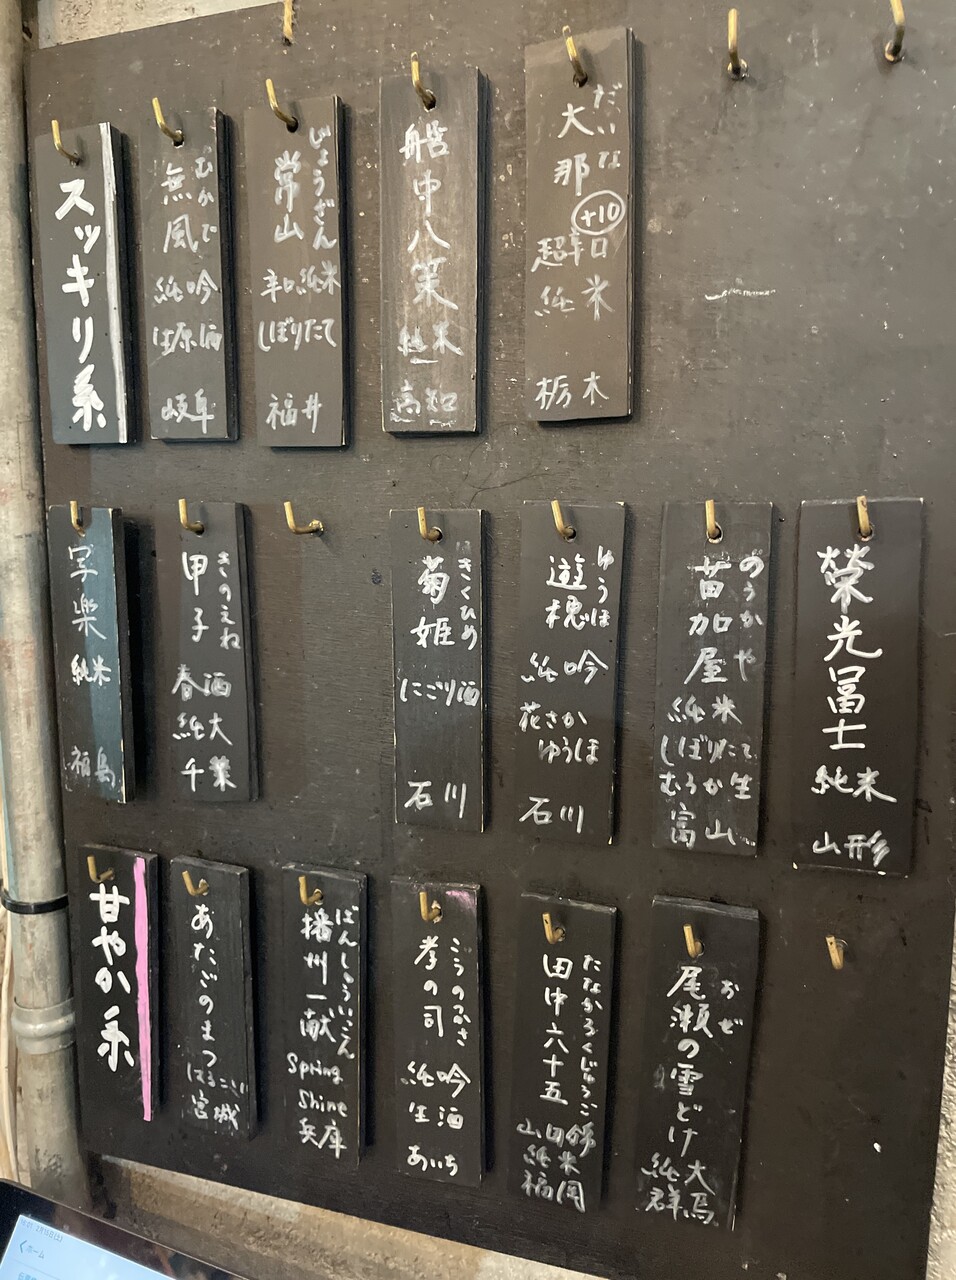 スッキリ系
むかで
無風
純吟
生原酒
岐阜
じょうざん
常山
辛口純米
しぼりたて
福井
船中八策
純米
高知
だいな
大那
+10
超辛口
純米
栃木
写楽
純米
福島
きのえね
甲子
春酒
純大
千葉
きくひめ
菊姫
にごり酒
石川
ゆうほ
遊穂
純吟
花さか
ゆうほ
石川
のうかや
苗加屋
純米
しぼりたて
むろか生
富山
榮光冨士
純米
山形
甘やか系
あたごのまつ
はるこい
宮城
ばんしゅういっこん
播州一献
Spring
Shine
兵庫
こうのつかさ
孝の司
純吟
生酒
あいち
たなかろくじゅうご
田中六十五
山田錦
純米
福岡
おぜ
尾瀬の雪どけ
純大
群馬
ホーム